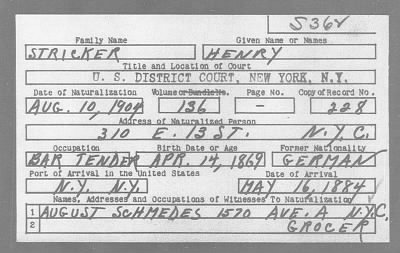 S36V
Family Name Given Name or Names
STRICKER HENRY
Title and Location of Court
U. S. DISTRICT COURT, NEW YORK, N.Y.
Date of Naturalization Volume or Bundle No. Page No. Copy of Record No.
AUG. 10, 1904 136 - 228
Address of Naturalized Person
310 E. 13 ST. N.Y.C.
Occupation Birth Date or Age Former Nationality
BAR TENDER APR. 14, 1869 GERMAN
Port of Arrival in the United States Date of Arrival
N.Y. N.Y. MAY 16, 1884
Names, Addresses and Occupations of Witnesses To Naturalization
1 AUGUST SCHMEDES 1570 AVE. A N.Y.C.
2 GROCER